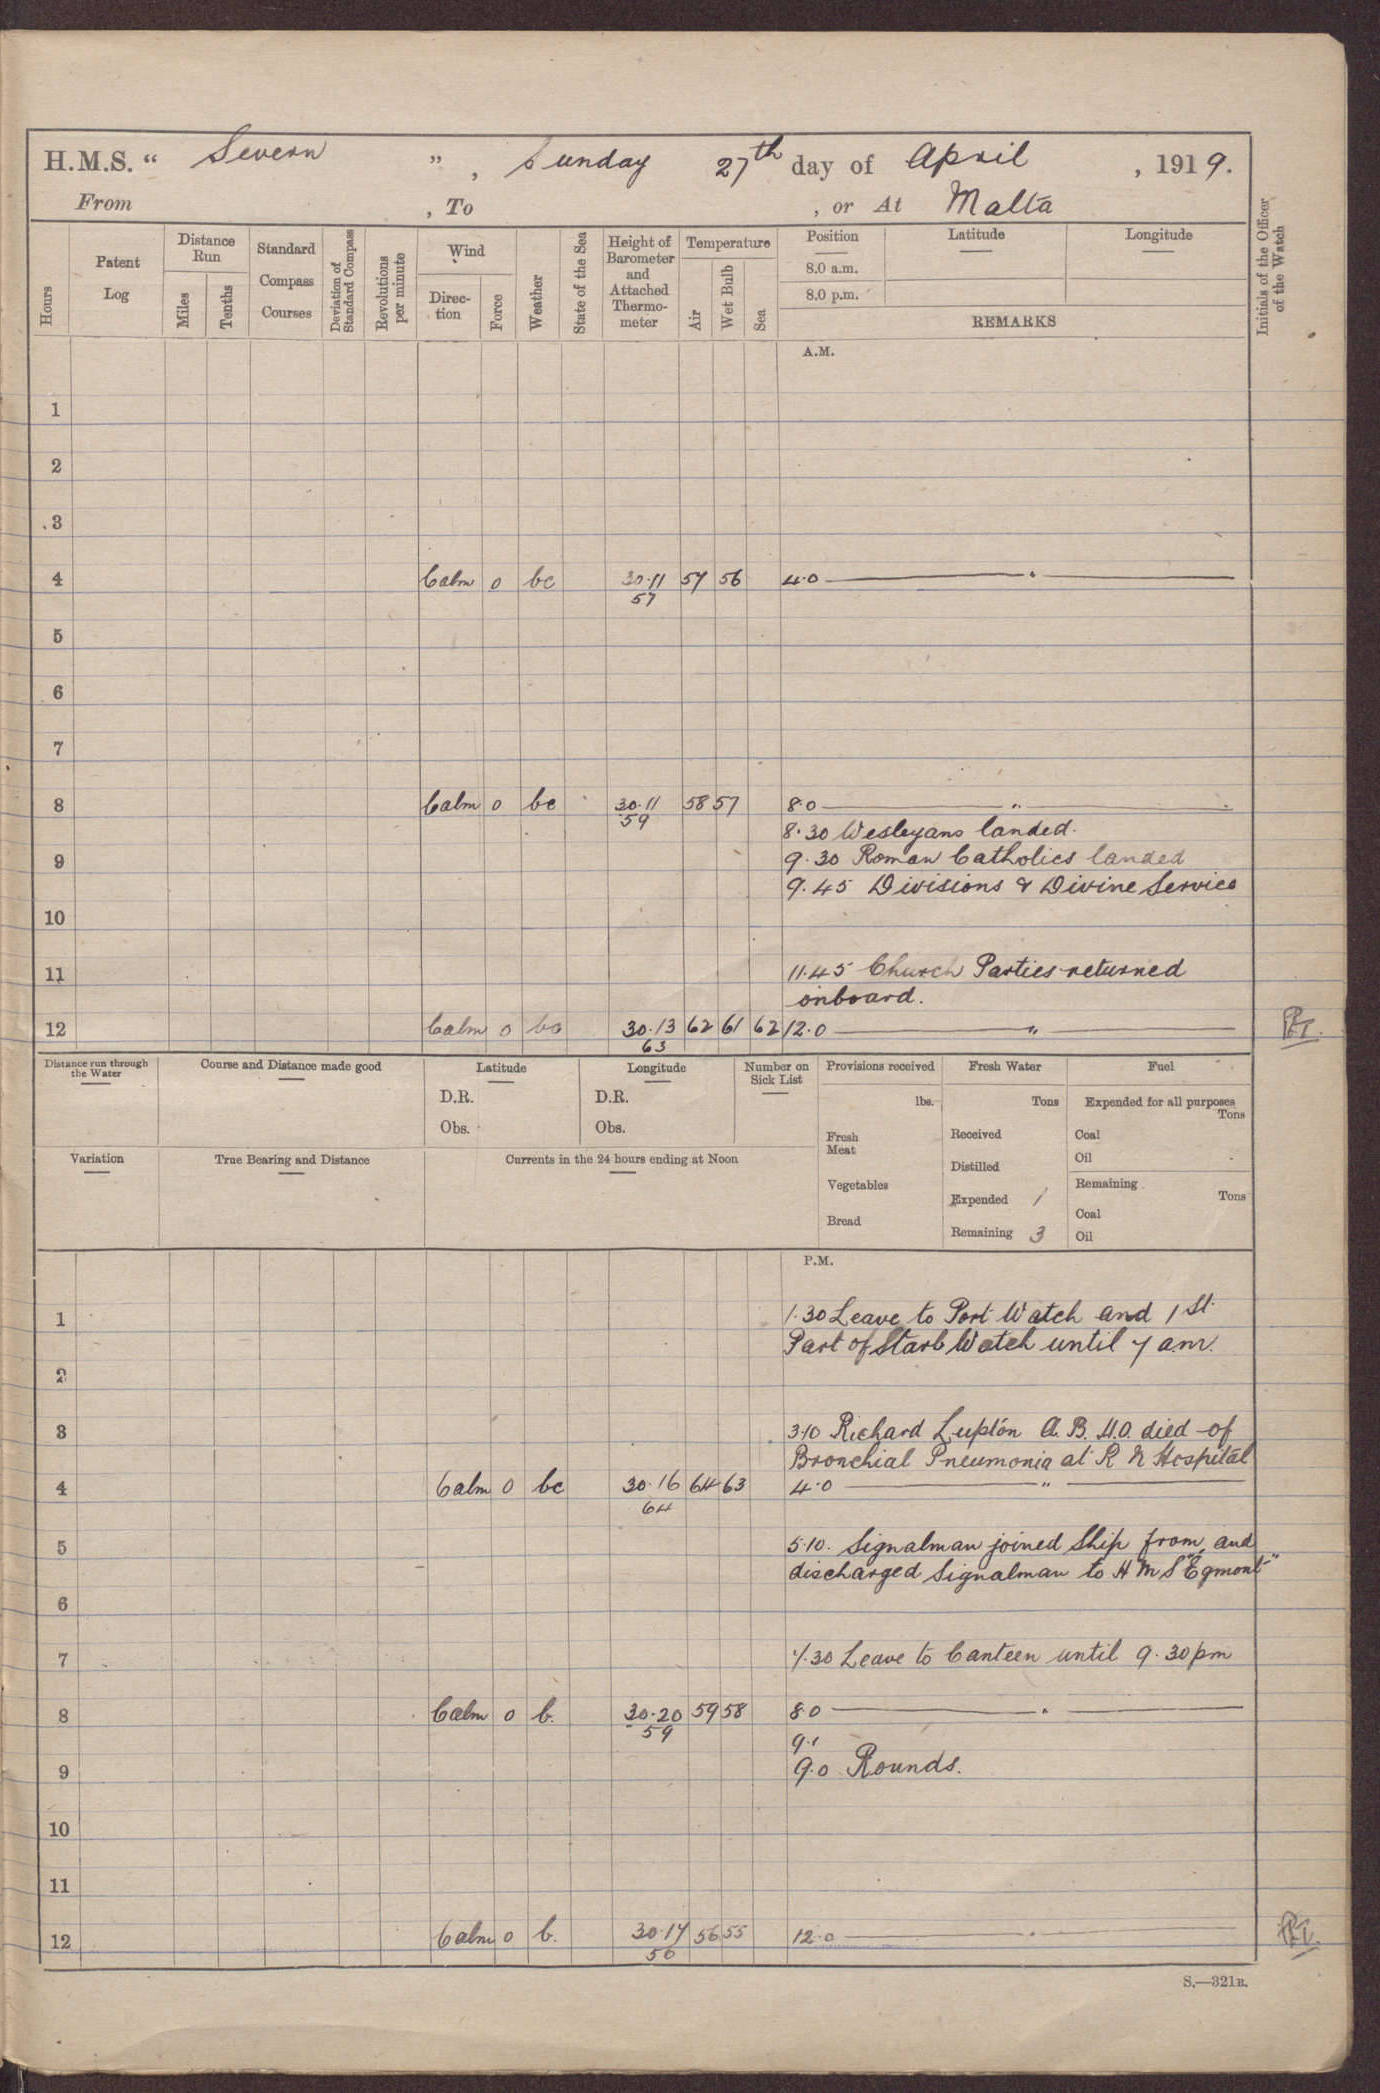 H.M.S. “ Severn ” , Sunday 27th day of April , 1919.
From , To , or At Malta
Hours
Patent Log
Distance Run
Miles
Tenths
Standard Compass Courses
Deviation of Standard Compass
Revolutions per minute
Wind
Direc-tion
Force
Weather
State of the Sea
Height of Barometer and Attached Thermo-meter
Temperature
Air
Wet Bulb
Sea
Position
8.0 a.m.
8.0 p.m.
Latitude
Longitude
REMARKS
Initials of the Officer of the Watch
A.M.
1
2
3
4 Calm 0 bc 30.11 57 56 4.0 — " —
57
5
6
7
8 Calm 0 bc 30.11 58 57 8.0 — " —
59
8.30 Wesleyans landed.
9 9.30 Roman Catholics landed
9.45 Divisions & Divine Service
10
11 11.45 Church Parties returned
onboard.
12 Calm 0 bc 30.13 62 61 62 12.0 — " —
63
Distance run through the Water
Course and Distance made good
Latitude
D.R.
Obs.
Longitude
D.R.
Obs.
Number on Sick List
Provisions received
lbs.
Fresh Meat
Vegetables
Bread
Fresh Water
Tons
Received
Distilled
Expended 1
Remaining 3
Fuel
Expended for all purposes
Tons
Coal
Oil
Remaining
Tons
Coal
Oil
Variation
True Bearing and Distance
Currents in the 24 hours ending at Noon
P.M.
1 1.30 Leave to Port Watch and 1st
Part of Starb Watch until 7 am.
2
3 3.10 Richard Lupton A.B. H.O. died of
Bronchial Pneumonia at R N Hospital
4 Calm 0 bc 30.16 64 63 4.0 — " —
64
5 5.10. Signalman joined Ship from, and
discharged Signalman to H M S "Egmont"
6
7 7.30 Leave to Canteen until 9.30 pm
8 Calm 0 b. 30.20 59 58 8.0 — " —
59
9.1
9 9.0 Rounds.
10
11
12 Calm 0 b. 30.17 56 55 12.0 — " —
56
S.—321B.